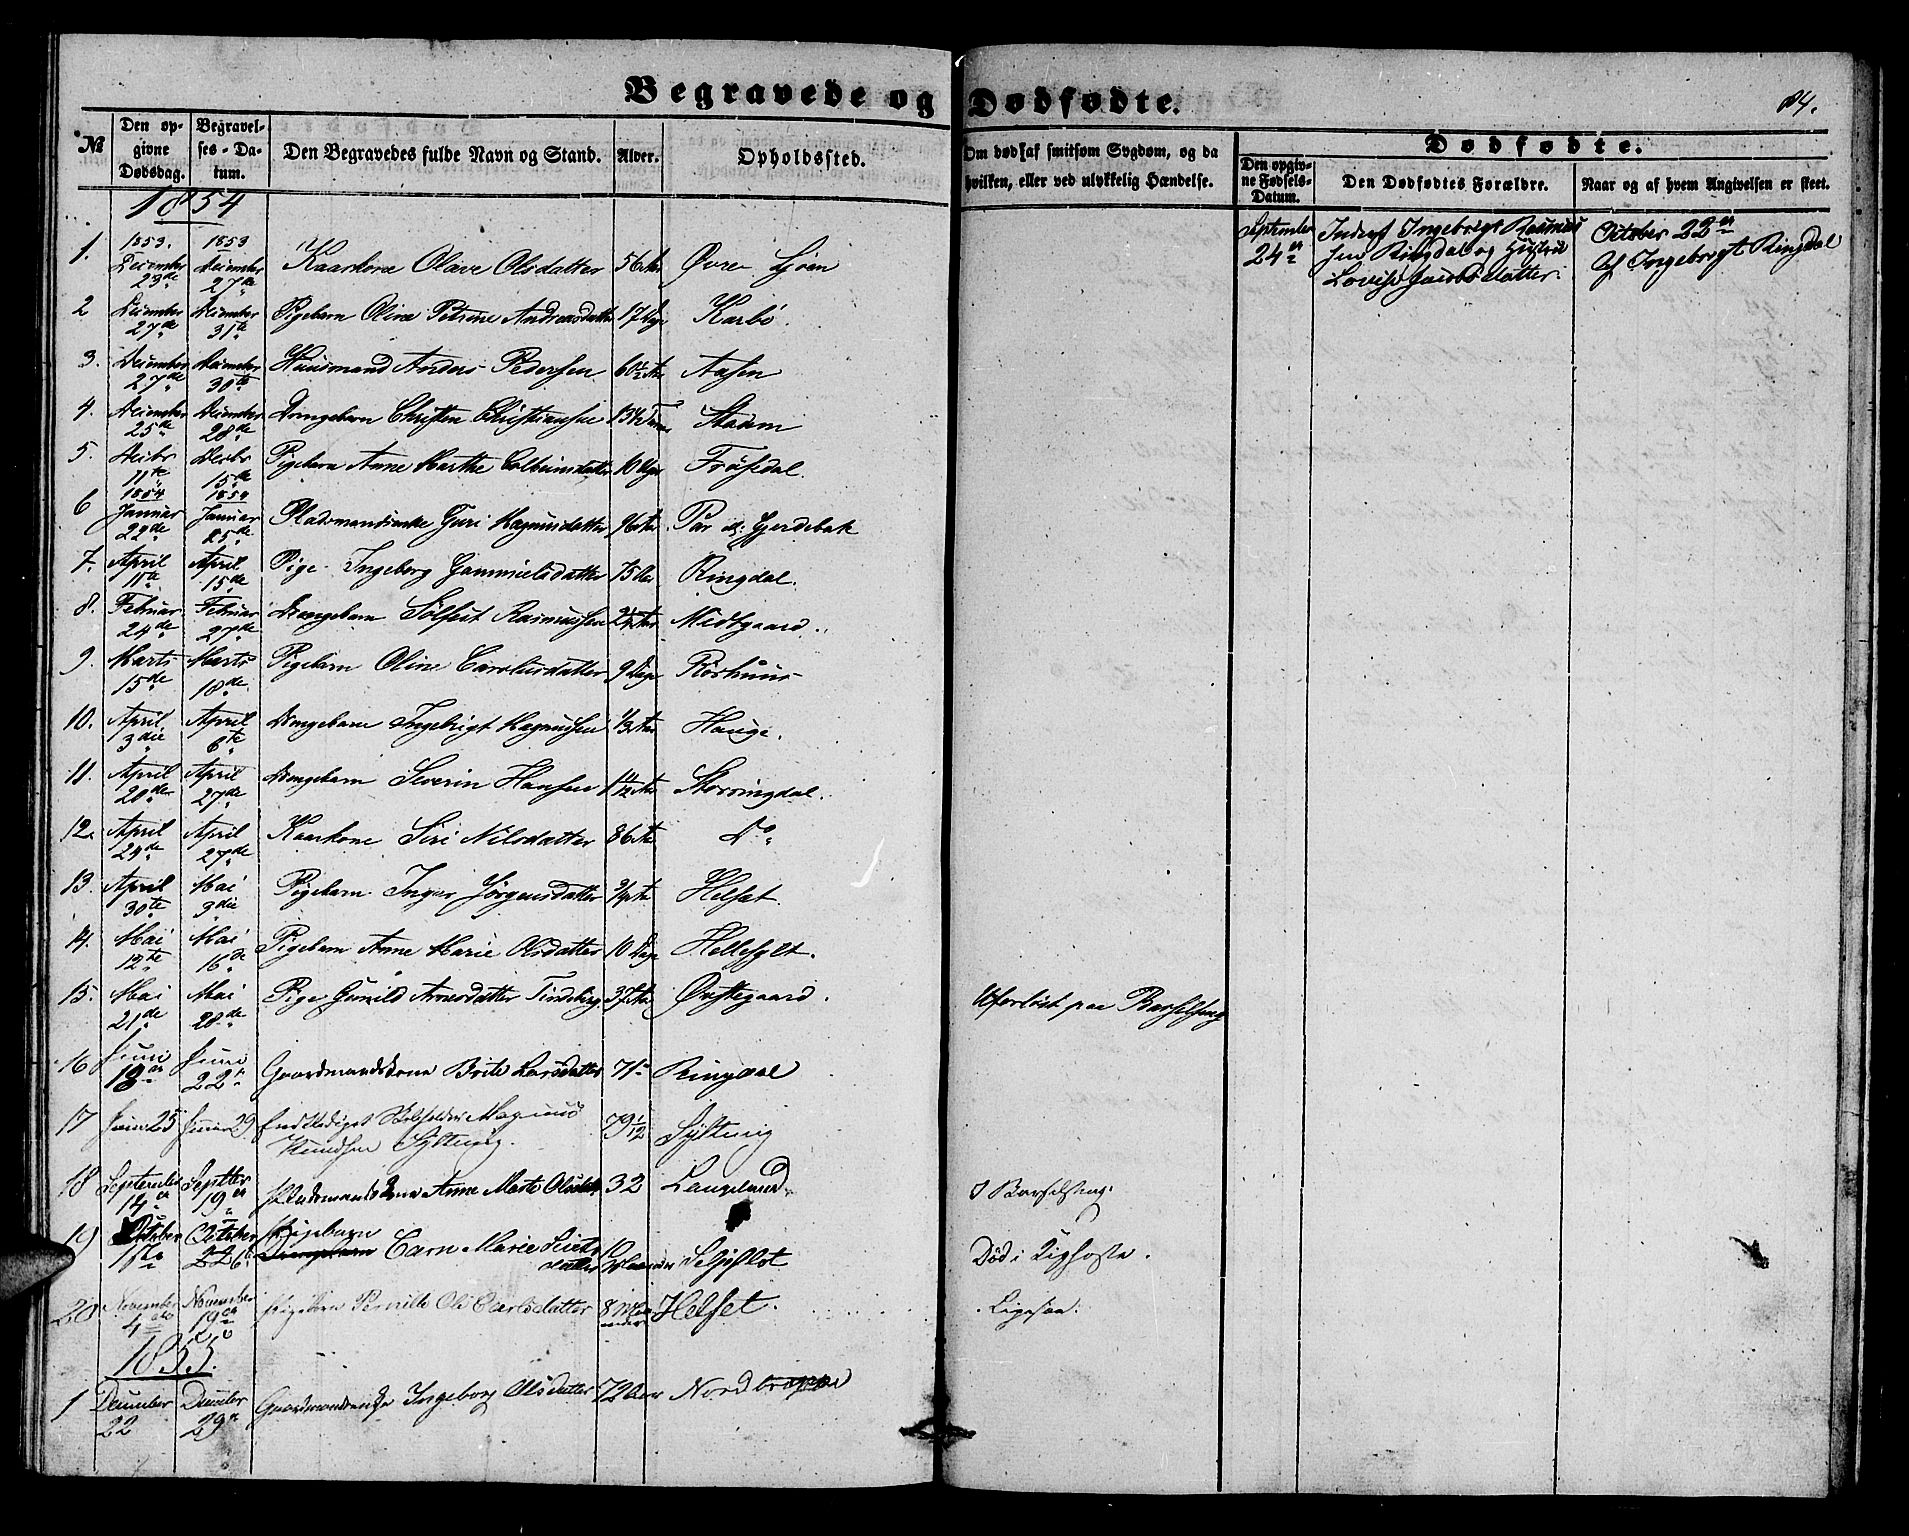 Begravede og Dødfødte.
84.
No
Den opgivne Dødsdag.
Begravelses-Datum.
Den Begravedes fulde Navn og Stand.
Alder.
Opholdssted.
Om død af smitsom Sygdom, og da hvilken, eller ved ulykkelig Hændelse.
Dødfødte.
Den opgivne Fødsels-Datum.
Den Dødfødtes Forældre.
Naar og af hvem Angivelsen er skeet.
1854
September 24de Inderst Ingebrigt Rasmussen Ringdal og Hustru Lovise Jacobsdatter. October 22de af Ingebrigt Ringdal
1. 1853. December 23de 1853 December 27de Kaarkone Olave Olsdatter 56 Aar Øvre Ljøen
2 December 27de December 31te Pigebarn Oline Petrine Andreasdatter 17 Dage Karbø.
3. December 27de December 30te Huusmand Anders Pedersen 60 Aar Aasen
4. December 25de December 28de Drengebarn Christen Christiansen Stadem
5. Decbr 11te Decbr 15de Pigebarn Anne Marthe 10 Dage Frøysdal.
6 1854 Januar 22de 1854 Januar 25de Pladsmandsenke Guri Magnusdatter 96 Aar Gjerdebak
7. April 11te April 15de Pige Ingeborg Gammielsdatter 15 Aar Ringdal.
8. Februar 24de Februar 27de Drengebarn Sølfest Rasmussen Midtgaard.
9. Marts 15de Marts 18de Pigebarn Oline Carolusdatter 9 Dage Rørhuus
10. April 3die April 6te Drengebarn Ingebrigt Magnussen Hauge.
11. April 20de April 27de Drengebarn Severin Hansen Storringdal.
12. April 24de April 27de Kaarkone Siri Nilsdatter 86 Aar Do
13. April 30te Mai 3die Pigebarn Inger Jørgensdatter 3/4 Aar Helset.
14. Mai 12te Mai 16de Pigebarn Anne Marie Olsdatter 10 Dage Hellesylt.
15. Mai 21de Mai 28de Pige Gunild Arnesdatter Tindebirg 37 Aar Øvstegaard. Uforløst paa Barselseng
16 Juni 18de Juni 22de Gaardmandskone Brite Larsdatter 71 Ringdal
17 Juni 25 Juni 29 Magnus Knudsen Syltevig. 79 1/12 Syltevig
18 September 14de Septber 19de Pladsmandskone Anne Marte Olsdatter 32 Langeland I Barselseng.
19 October 15de October 22de Pigebarn Carn Marie Maaneder Seljeflot Død i Kighoste.
20 November 4de November 19de Pigebarn Pernille Oli Carlsdatter 8 Maaneder Helset. Ligesaa.
1855.
1 December 22 December 29de Gaardmandsenke Ingeborg Olsdatter 72 Aar Nord